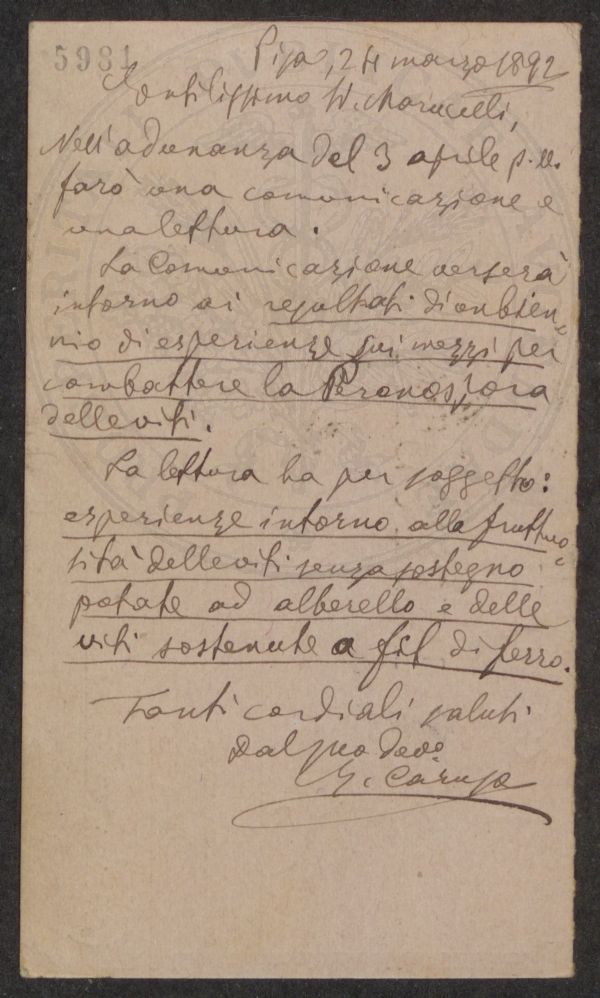 5981
Pisa, 24 marzo 1892
Gentilissimo Sr. Marucelli,
Nell'adunanza del 3 aprile p. v.
farò una comunicazione e
una lettura.
La Comunicazione verserà
intorno ai resultati di un bien=
nio di esperienze sui mezzi per
combattere la Peronospora
delle viti.
La lettura ha per soggetto:
esperienze intorno alla fruttuo=
sità delle viti senza sostegno
potate ad alberello e delle
viti sostenute a fil di ferro.
Tanti cordiali saluti
Dal suo devo
G. Caruso